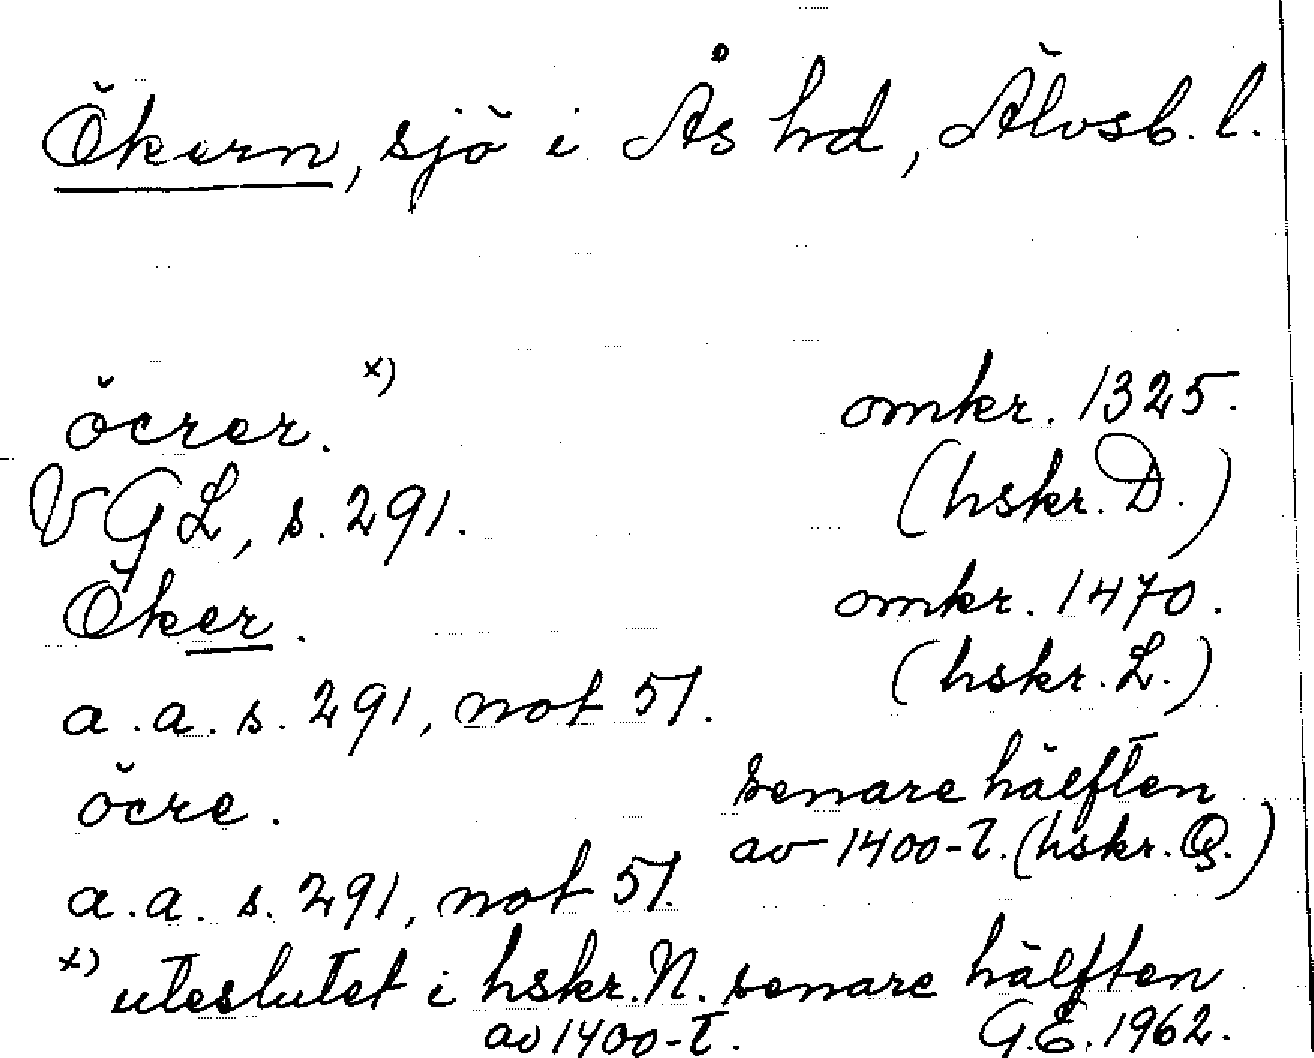 Ökern, sjö i Ås hd, Älvsb. l.
öcrer. x) omkr. 1325.
VGL, s. 291. (hskr. D.)
Öker. omkr. 1470.
a.a. s. 291, not 51. (hskr. L.)
öcre. senare hälften
av 1400-t. (hskr. Q.)
a.a. s. 291, not 51.
x) uteslutet i hskr. N. senare hälften
av 1400-t. G.E. 1962.